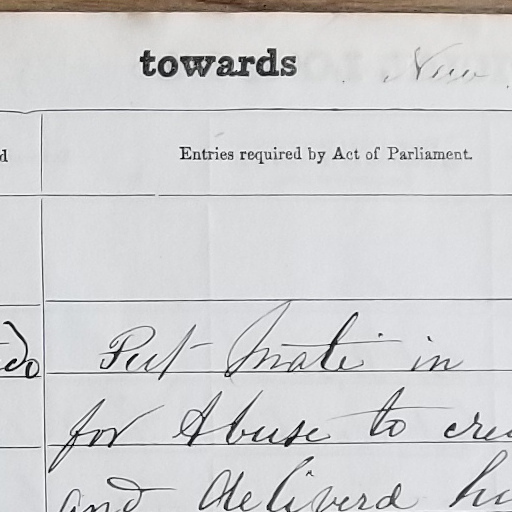 towards New
d Entries required by Act of Parliament.
do Put Mate in
for Abuse to
and deliverd